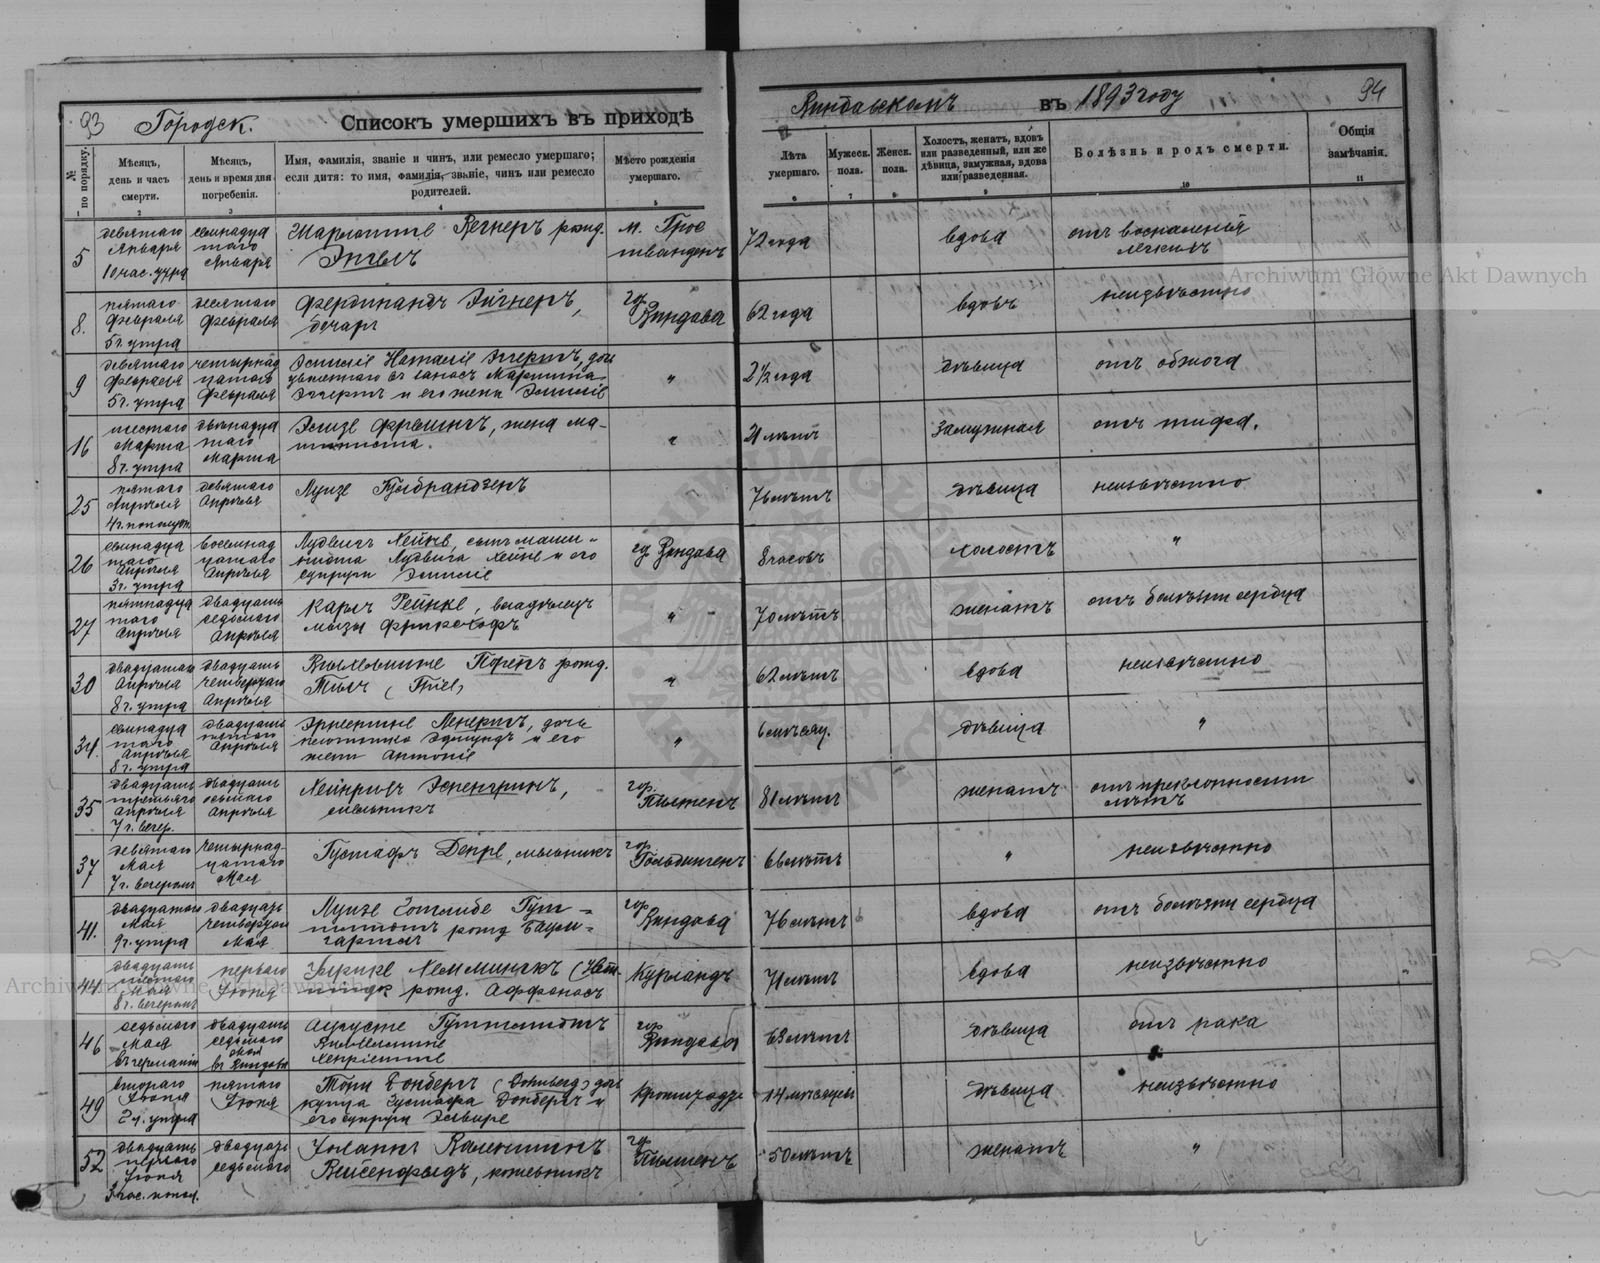 93 Городск. Списокъ умершихъ въ приходѣ Виндавскомъ въ 1893 году 94
№ по порядку.
Мѣсяцъ, день и часъ смерти.
Мѣсяцъ, день и время дня погребенія.
Имя, фамилія, званіе и чинъ, или ремесло умершаго;
если дитя: то имя, фамилія, званіе, чинъ или ремесло
родителей.
Мѣсто рожденія умершаго.
Лѣта умершаго.
Мужеск. пола.
Женск. пола.
Холостъ, женатъ, вдовъ
или разведенный, или же
дѣвица, замужная, вдова
или разведенная.
Болѣзнь и родъ смерти.
Общія замѣчанія.
1 2 3 4 5 6 7 8 9 10 11
5
девятаго Января 10 час. утра
Шарлотте Вегнеръ рожд.
72 года
вдова
отъ воспаленія легкихъ
8.
пятаго Февраля 5 ч. утра
десятаго Февраля
Фердинандъ Эйхнеръ,
гор. Виндава
62 года
вдовъ
неизвѣстно
9
девятаго Февраля 5 ч. утра
четырнадцатаго Февраля
"
2 1/2 года
дѣвица
отъ обжога
16
шестого Марта 8 ч. утра
двѣнадцатаго Марта
жена машиниста.
"
21 лѣтъ
замужняя
отъ тифа.
25
пятаго Апрѣля
девятаго Апрѣля
Луизе Гильбрандзенъ
76 лѣтъ
дѣвица
неизвѣстно
26
семнадцатаго Апрѣля 3 ч. утра
восемнадцатаго Апрѣля
Лудвигъ Хейне, сынъ машиниста Лудвига Хейне и его
супруги Эмиліе
гор. Виндава
8 часовъ
холостъ
"
27
пятнадцатаго Апрѣля
двадцать седьмого Апрѣля
Карлъ Рейнке, владѣлецъ
мызы
"
70 лѣтъ
женатъ
отъ болѣзни сердца
30
двадцатаго Апрѣля 8 ч. утра
двадцать четвертаго Апрѣля
Вильгельмине рожд.
Тиль (Thiel)
"
62 лѣтъ
вдова
неизвѣстно
34.
семнадцатаго Апрѣля 8 ч. утра
двадцать пятаго Апрѣля
Эрнестине Ленертъ, дочь
плотника Эдмундъ и его
жены Антоніе
"
6 мѣсяц.
дѣвица
"
35
двадцать третьяго Апрѣля 7 ч. вечер.
двадцать осьмаго Апрѣля
Хейнрихъ
мельникъ
гор. Пильтенъ
81 лѣтъ
женатъ
отъ преклонности лѣтъ
37
девятаго Мая 7 ч. вечеромъ
четырнадцатаго Мая
Густафъ Депре, мельникъ
гор. Гольдингенъ
66 лѣтъ
"
неизвѣстно
41.
двадцатаго Мая 9 ч. утра
двадцать четвертаго Мая
Луизе Готлибе
рожд. Баумгартъ
гор. Виндава
76 лѣтъ
вдова
отъ болѣзни сердца
44.
двадцать шестаго Мая 8 ч. вечеромъ
перваго Іюня
рожд.
Курландъ
71 лѣтъ
вдова
неизвѣстно
46
седьмого Мая въ Германіи
двадцать седьмого Мая въ Виндавѣ
Аугусте Гутшмидтъ
Вильгельмине
Хенріетте
гор. Виндава
63 лѣтъ
дѣвица
отъ рака
49
второго Іюня 2 ч. утра
пятаго Іюня
Тони Донбергъ (Dohnberg) дочь
купца Густафа Донбергъ и
его супруги Эльвире
Кронштадтъ
14 мѣсяцевъ
дѣвица
неизвѣстно
52
двадцать перваго Іюня 3 час. попол.
двадцать седьмого
Іоганнъ Валентинъ
гор. Пильтенъ
50 лѣтъ
женатъ
"
Archiwum Główne Akt Dawnych
Archiwum Główne Akt Dawnych